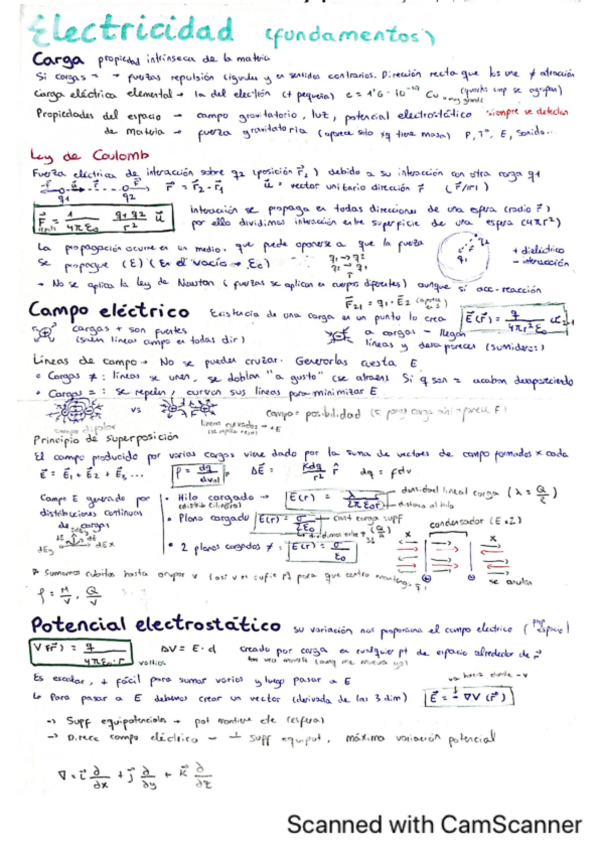 Electricidad (fundamentos)
Carga propiedad intrínseca de la materia
Si cargas = → fuerzas repulsión iguales y en sentidos contrarios. Dirección recta que los une ≠ atracción
Carga eléctrica elemental → la del electrón (+ pequeña) e = 1'6 · 10⁻¹⁹ Cu
Propiedades del espacio → campo gravitatorio, luz, potencial electrostático siempre se detectan
de materia → fuerza gravitatoria (aparece solo xq tiene masa) P, Tª, E, Sonido...
Ley de Coulomb
Fuerza eléctrica de interacción sobre q2 (posición r⃗₂) debido a su interacción con otra carga q1
r⃗ = r⃗₂ - r⃗₁ u⃗ = vector unitario dirección r⃗ (r⃗/|r|)
F⃗ = 1/4πε₀ q1 q2/r² u⃗
interacción se propaga en todas direcciones de una esfera (radio r⃗)
por ello dividimos interacción entre superficie de una esfera (4πr²)
La propagación ocurre en un medio, que puede oponerse a que la fuerza
se propague (ε) (En el vacío → ε₀)
+ dieléctrico
- interacción
→ No se aplica la ley de Newton (fuerzas se aplican en cuerpos diferentes) aunque sí acc-reacción
F₂₁ = q₁ · E₂
Campo eléctrico Existencia de una carga en un punto lo crea E⃗(r⃗) = q/4πr²ε₀
cargas + son fuentes
(salen líneas campo en todas dir)
a cargas - llegan
líneas y desaparecen (sumideros)
Líneas de campo → No se pueden cruzar. Generarlas cuesta E
• Cargas ≠: líneas se unen, se doblan "a gusto" (se atraen) Si q son = acaban desapareciendo
• Cargas =: se repelen, curvan sus líneas para minimizar E
vs
campo = posibilidad
campo dipolar
Principio de superposición
El campo producido por varias cargas viene dado por la suma de vectores de campo formados x cada
E⃗ = E⃗₁ + E⃗₂ + E⃗₃ ...
Campo E generado por
distribuciones continuas
de cargas
• Hilo cargado →
densidad lineal carga (λ = Q/L)
distancia al hilo
• Plano cargado E(r) = σ/2ε₀
condensador (E×2)
• 2 planos cargados ≠: E(r) = σ/ε₀
se anulan
Potencial electrostático su variación nos proporciona el campo eléctrico
V(r⃗) = q/4πε₀·r
voltios
ΔV = E · d
creado por carga en cualquier pt de espacio alrededor de r⃗
Es escalar, + fácil para sumar varios y luego pasar a E
↳ Para pasar a E debemos crear un vector (derivada de las 3 dim) E⃗ = - ∇V (r⃗)
→ Supf equipotenciales → pot mantiene cte (esfera)
→ Direcc campo eléctrico → ⊥ supf equipot, máxima variación potencial
∇ = i⃗ ∂/∂x + j⃗ ∂/∂y + k⃗ ∂/∂z
Scanned with CamScanner